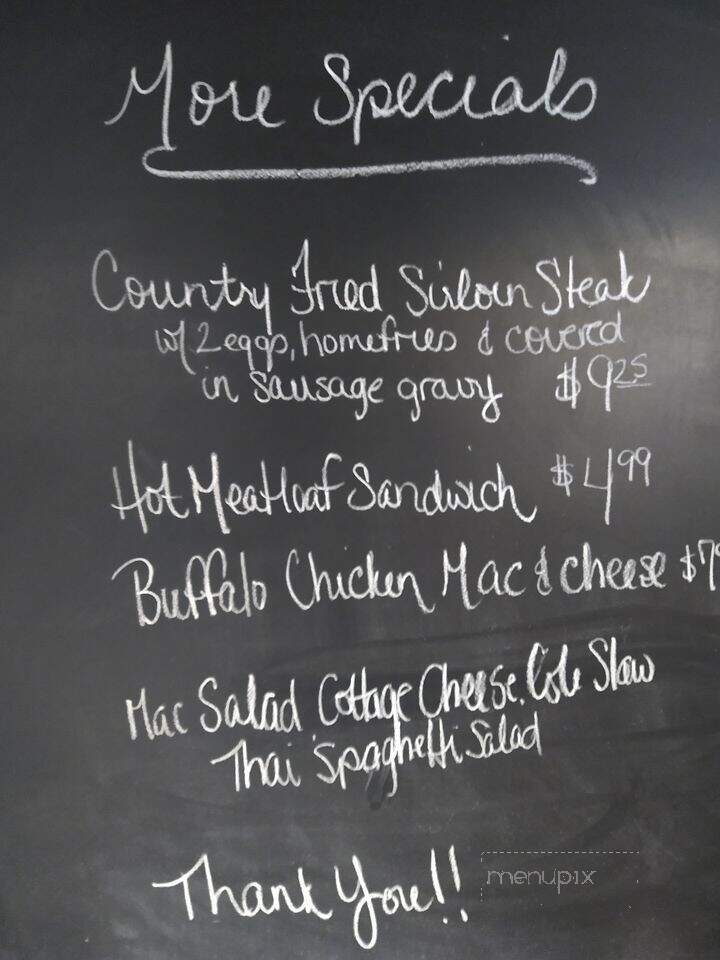 More Specials
Country Fried Sirloin Steak
w/ 2 eggs, homefries & covered
in sausage gravy $9.25
Hot Meatloaf Sandwich $4.99
Buffalo Chicken Mac & cheese $7
Mac Salad Cottage Cheese, Cole Slaw
Thai Spaghetti Salad
Thank You!!
menupix